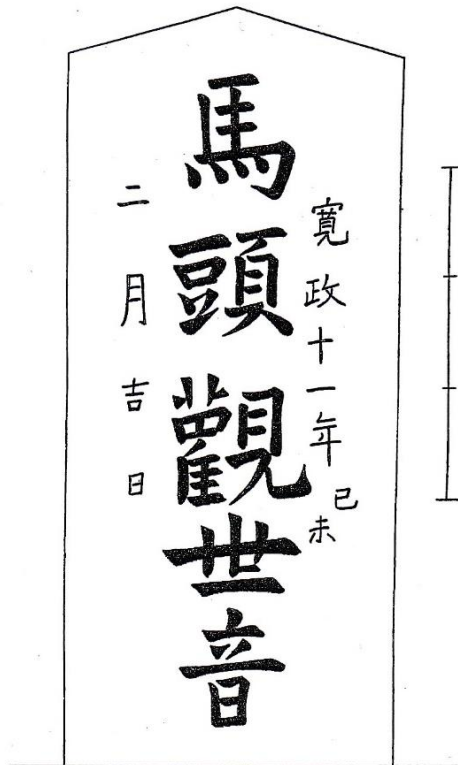 寛政十一年己未
馬頭觀世音
二月吉日